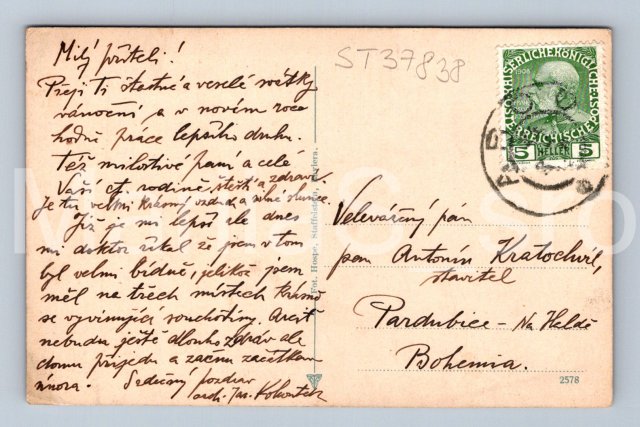 Milý příteli!
Přeji Ti šťastné a veselé svátky
vánoční a v novém roce
hodně práce lepšího druhu.
Též milostivé paní a celé
Vaší ct. rodině štěstí a zdraví.
Je tu velmi krásný vzduch a silné slunce.
Již je mi lépší ale dnes
mi doktor říkal že jsem v tom
byl velmi bídně, jelikož jsem
měl na třech místech krásně
se vyvinující souchotiny. Arciť
nebudu ještě dlouho zdráv ale
domu přijedu a začnu začátkem
února. Srdečný pozdrav
arch. Jar.
ST37838
5 HELLER 5
Fot. Hospe, Staffelstein,
Velevážený pán
pan Antonín Kratochvíl,
stavitel
Pardubice - Na Haldě
Bohemia.
2578